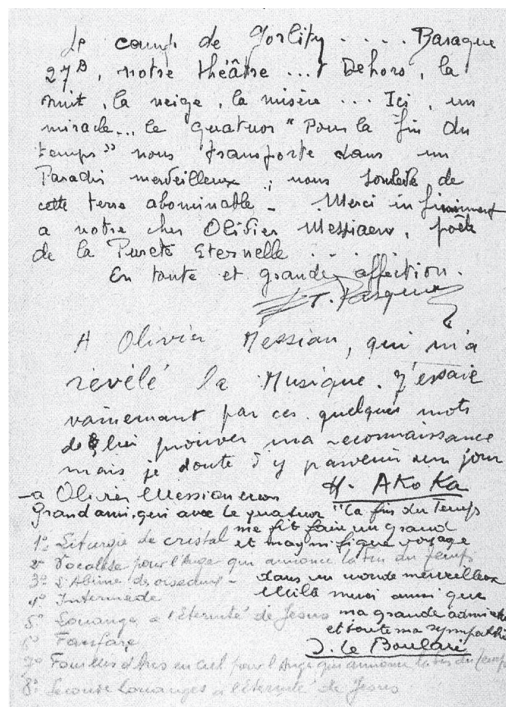 Le camp de Gorlitz .... Baraque
27B, notre théâtre ... Dehors, la
nuit, la neige, la misère ... Ici, un
miracle... le quatuor "Pour la fin du
temps" nous transporte dans un
Paradis merveilleux, nous soulève de
cette terre abominable - Merci infiniment
a notre cher Olivier Messiaen, poète
de la Pureté Eternelle ......
En toute et grande affection.
E. Pasquier
A Olivier Messian, qui m'a
révélé la Musique. J'essaie
vainemant par ces quelques mots
de lui prouver ma reconnaissance
mais je doute d'y parvenir un jour
H. AKoKa
- a Olivier Messiaen mon
Grand ami, qui avec le quatuor "la fin du Temps
me fit faire un grand
et magnifique voyage
dans un monde merveilleux
ma grande admiration
et toute ma sympathie
J. Le Boulaire
1º Liturgie de cristal
2º Vocalise pour l'Ange qui annonce la fin du Temps
3º Abîme des oiseaux -
4º Intermède
5º Louange à l'éternité de Jésus
6º Fanfare
7º Fouillis d'arcs en ciel pour l'Ange qui annonce la fin du Temps
8º Seconde Louanges à l'éternité de Jésus